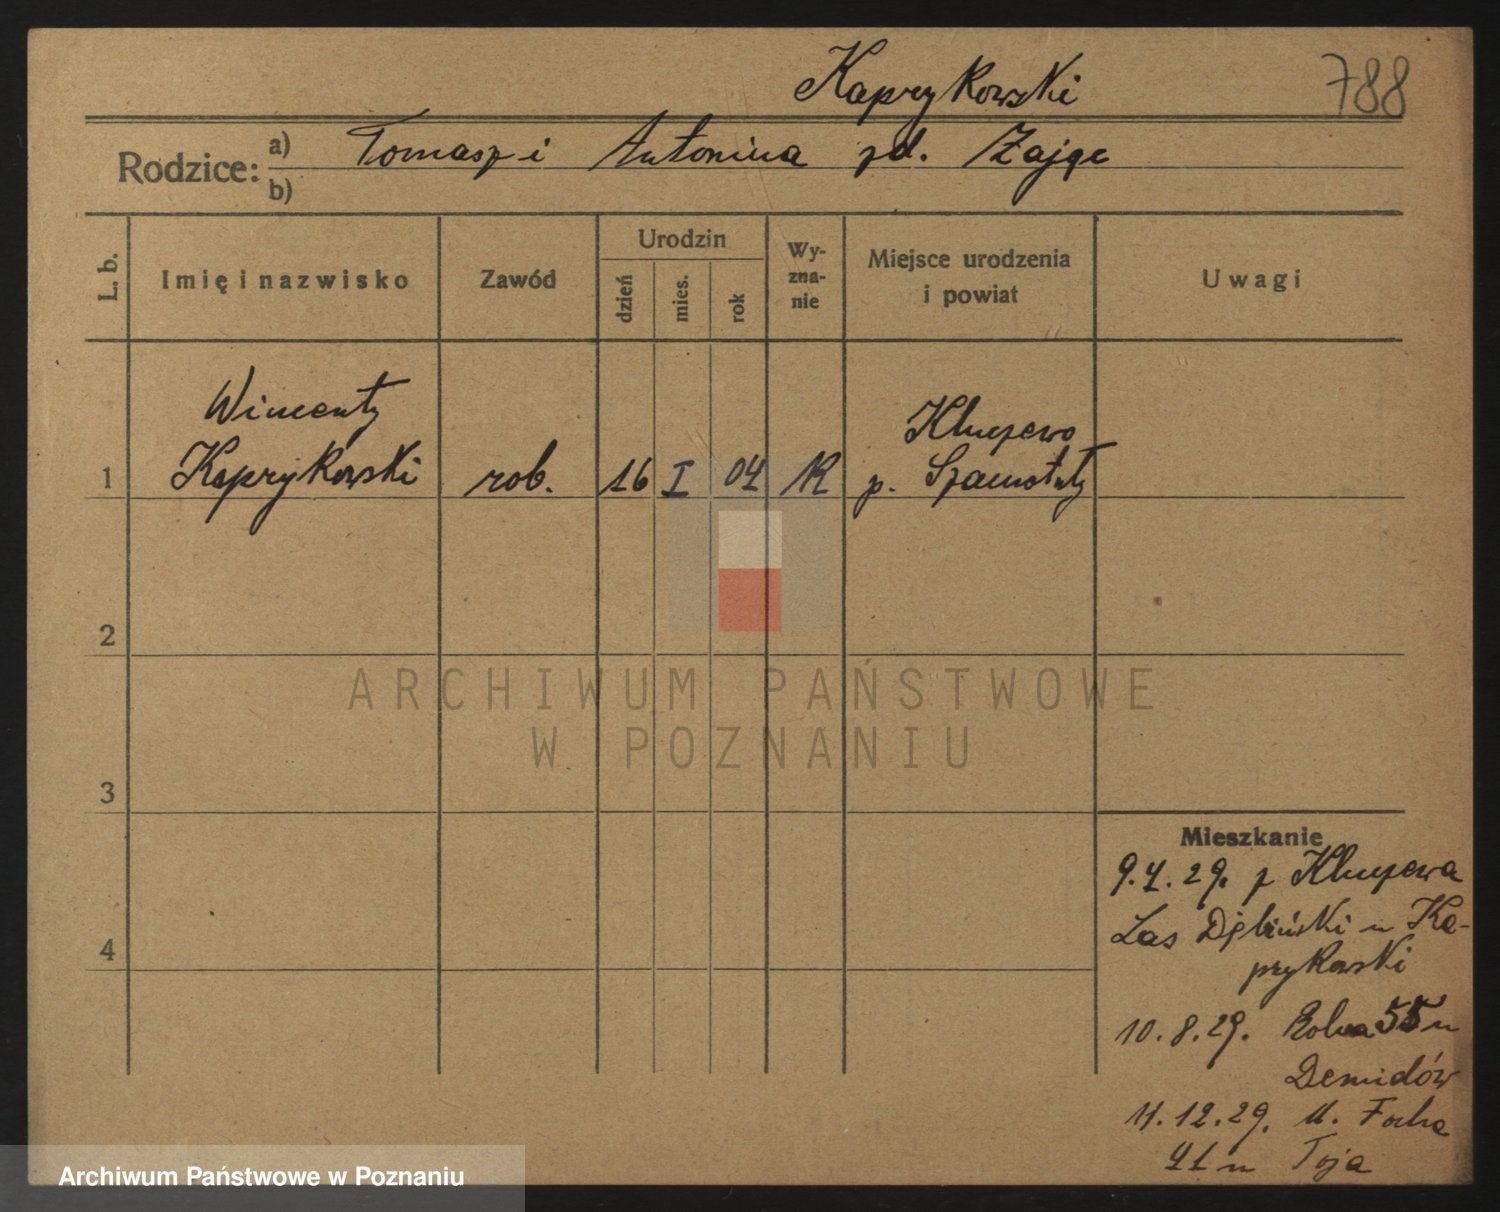 Kaprykowski
788
Rodzice:
a) Tomasz i Antonina zd. Zając
b)
L. b.
Imię i nazwisko
Zawód
Urodzin
dzień
mies.
rok
Wy-
zna-
nie
Miejsce urodzenia
i powiat
Uwagi
Wincenty
Kaprykowski
rob.
16
I
04
R
Kluczewo
p. Szamotuły
1
2
3
4
ARCHIWUM PAŃSTWOWE
W POZNANIU
Mieszkanie
9.4.29. z Kluczewa
Las Dębiński u Ka-
prykowski
10.8.29. Rolna 55 u
Demidów
11.12.29. M. Focha
u
Archiwum Państwowe w Poznaniu